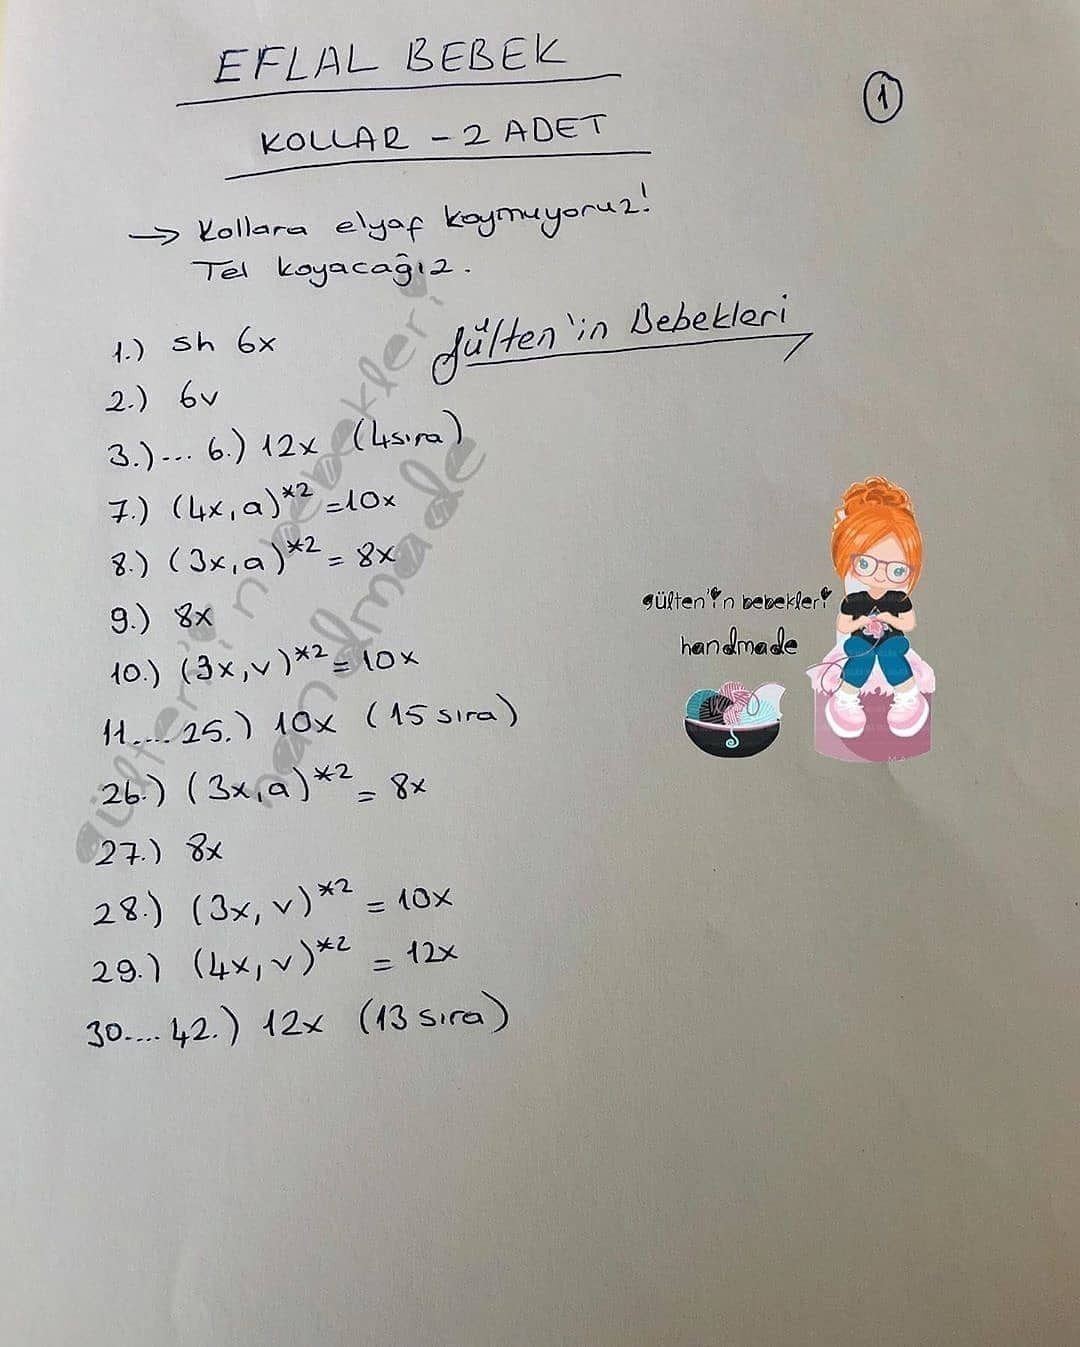 EFLAL BEBEK
1
KOLLAR - 2 ADET
→ Kollara elyaf koymuyoruz!
Tel koyacağız.
Gülten'in Bebekleri
1.) sh 6x
2.) 6v
3.)... 6.) 12x (4sıra)
7.) (4x,a)*2 =10x
8.) (3x,a)*2 = 8x
9.) 8x
10.) (3x,v)*2 = 10x
11.... 25.) 10x (15 sıra)
26.) (3x,a)*2 = 8x
27.) 8x
28.) (3x, v)*2 = 10x
29.) (4x, v)*2 = 12x
30.... 42.) 12x (13 sıra)
gülten'in bebekleri
handmade
gülten'in bebekleri
handmade